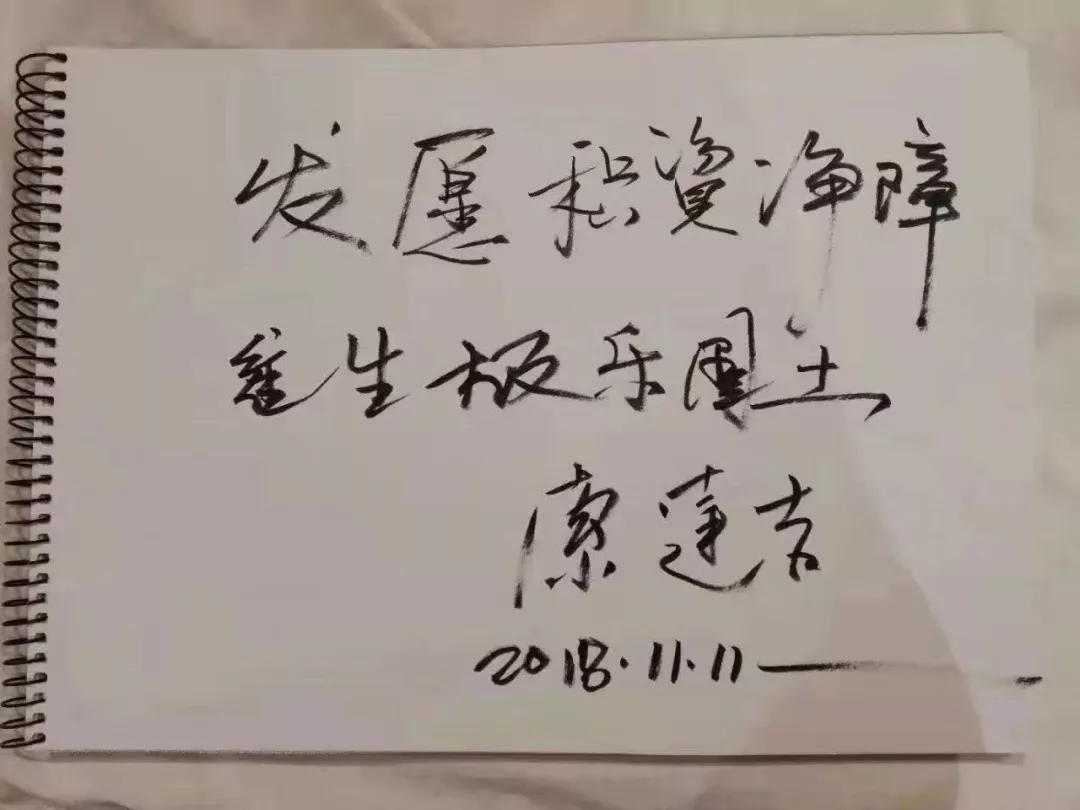 发愿积資净障
生极乐国土
索達吉
2018.11.11